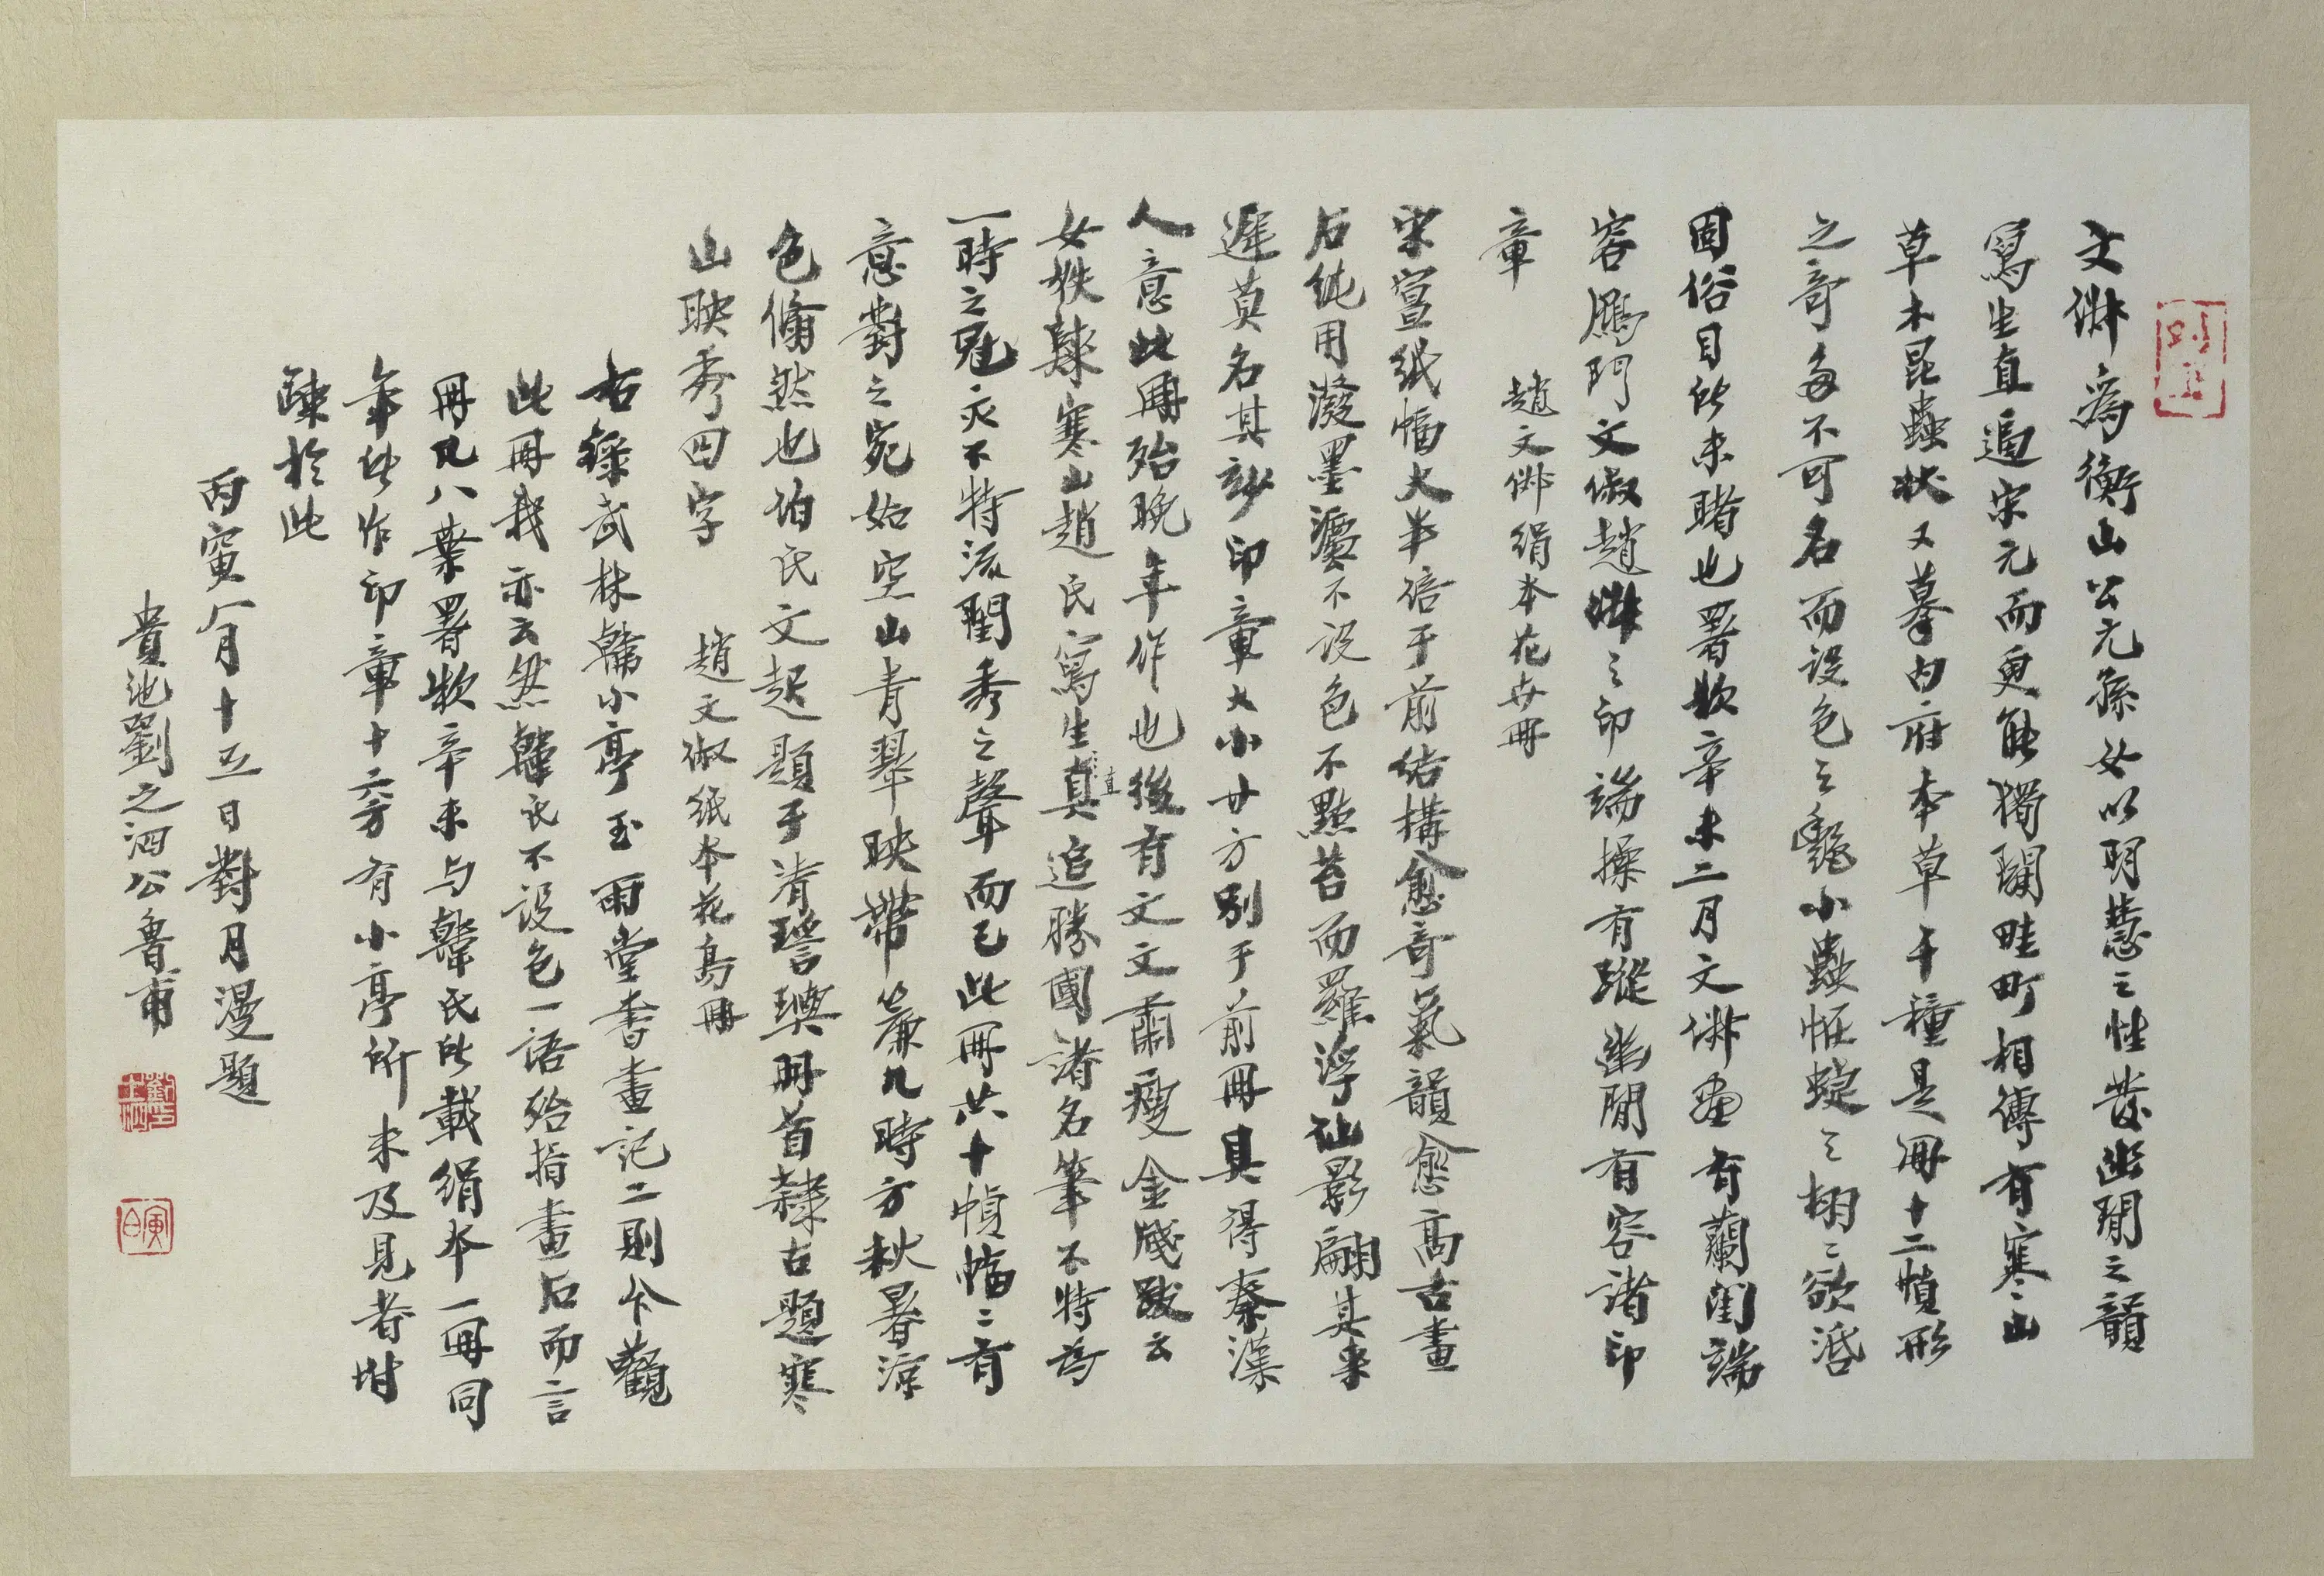 文俶為衡山公元孫女以明慧之性發幽閒之韻
寫生直追宋元而更能獨闢畦町相傳有寒山
草木昆蟲狀又摹內府本草千種是冊十二幀形
之奇多不可名而設色之豔小蟲怪蜨之栩〻欲活
固俗目所未睹也署款辛未二月文俶畫有蘭閨端
容鴈門文俶趙俶之印端操有蹤幽閒有容諸印
章　趙文俶絹本花卉冊
宋宣紙幅大半倍于前結構愈奇氣韻愈高古畫
石純用潑墨瀋不設色不點苔而羅浮仙影翩其來
遲莫名其妙印章大小廿方別于前冊具得秦漢
人意此冊殆晚年作也後有文文肅瘦金牋跋云
女姪歸寒山趙氏寫生直追勝國諸名筆不特為
一時之冠亦不特流閨秀之聲而已此冊共十幀幅〻有
意對之宛如空山青翠映帶簾几時方秋暑涼
色翛然也伯氏文起題于清瑤嶼冊首隸古題寒
山映秀四字　趙文俶紙本花鳥冊
右錄武林韓小亭玉雨堂書畫記二則今觀
此冊我亦云然韓氏不設色一語殆指畫石而言
冊凡八葉署款辛未与韓氏所載絹本一冊同
年所作印章十六方有小亭所未及見者附
疎於此
丙寅八月十五日對月漫題
貴池劉之泗公魯甫